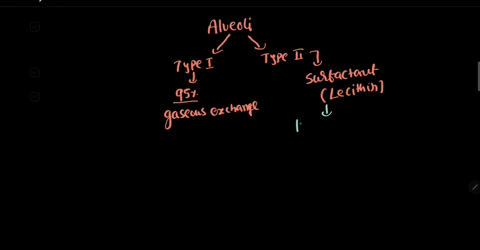 Alveoli
Type I
Type II
95%
gaseous exchange
Surfactant
(Lecithin)